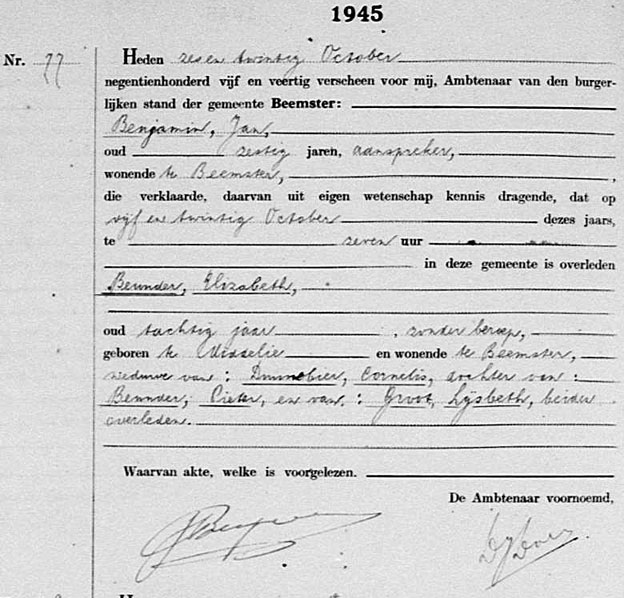 1945
Nr. 77 Heden zes en twintig October
negentienhonderd vijf en veertig verscheen voor mij, Ambtenaar van den burger-
lijken stand der gemeente Beemster:
Benjamin, Jan,
oud zestig jaren, aanspreker,
wonende te Beemster,
die verklaarde, daarvan uit eigen wetenschap kennis dragende, dat op
vijf en twintig October dezes jaars,
te zeven uur
in deze gemeente is overleden
Beunder, Elizabeth,
oud tachtig jaar, zonder beroep,
geboren te Middelie en wonende te Beemster,
weduwe van: Cornelis, dochter van:
Beunder, Pieter, en van: Groot, Lijsbeth, beiden
overleden.
Waarvan akte, welke is voorgelezen.
De Ambtenaar voornoemd,